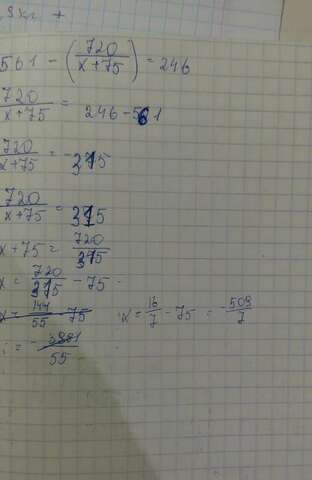 561 - (720/x+75) = 246
720/x+75 = 246-561
720/x+75 = -315
720/x+75 = 315
x+75 = 720/315
x = 720/315 - 75
x = 144/55 - 75 x = 16/7 - 75 = -509/7
= - 3981/55